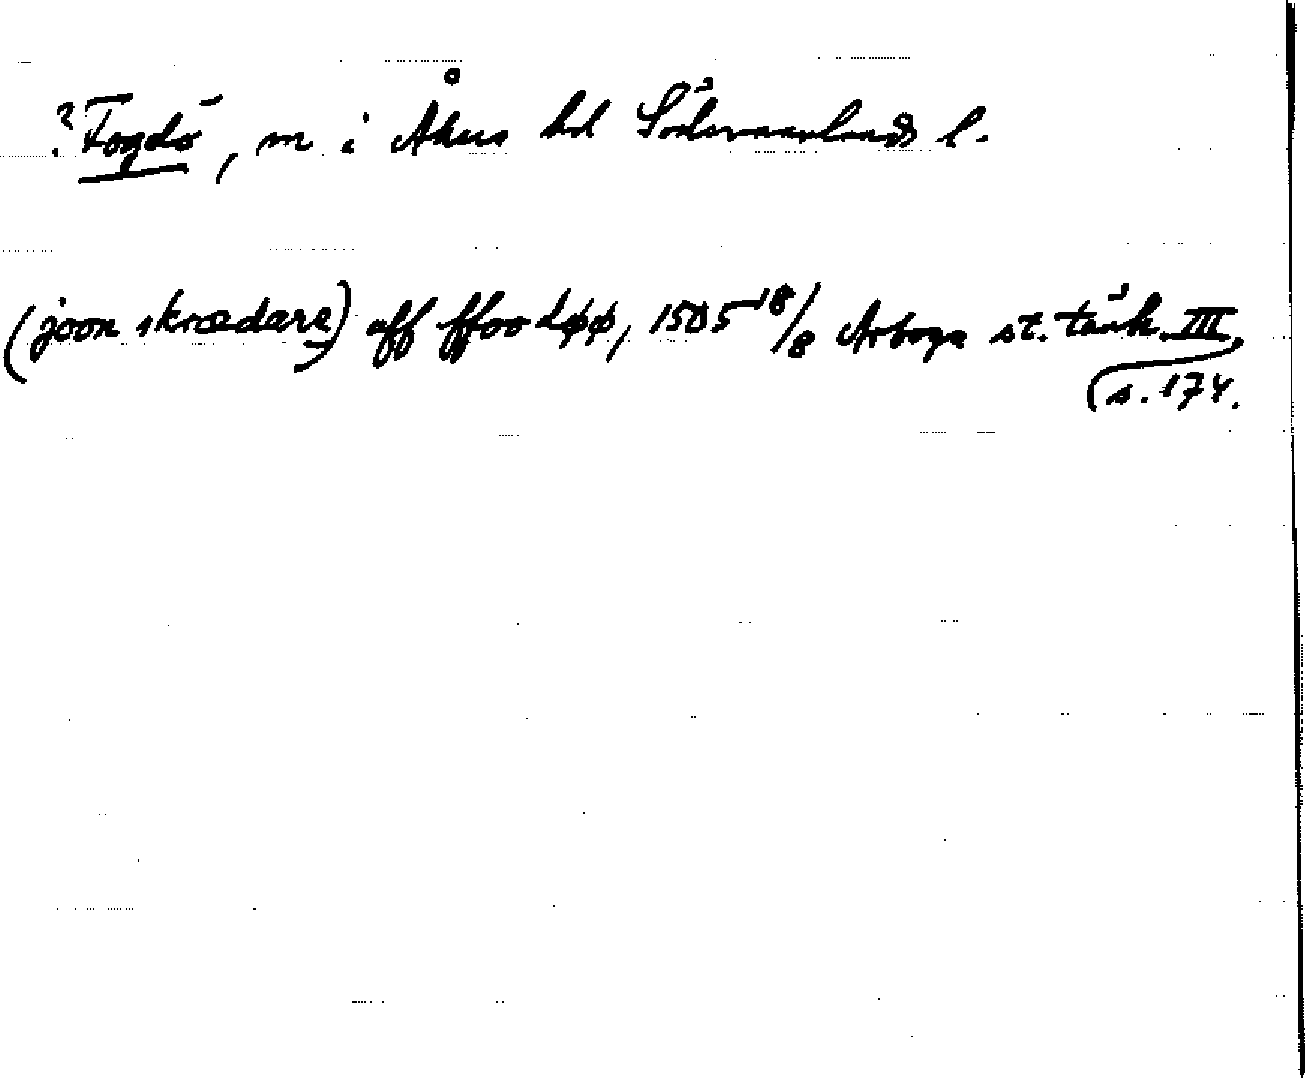 ? Fogdö, m i Åkers hd Södermanlands l.
(joon skrædare) aff ffoodøø, 1505 18/8 Arboga st. tänk. III,
s. 174.